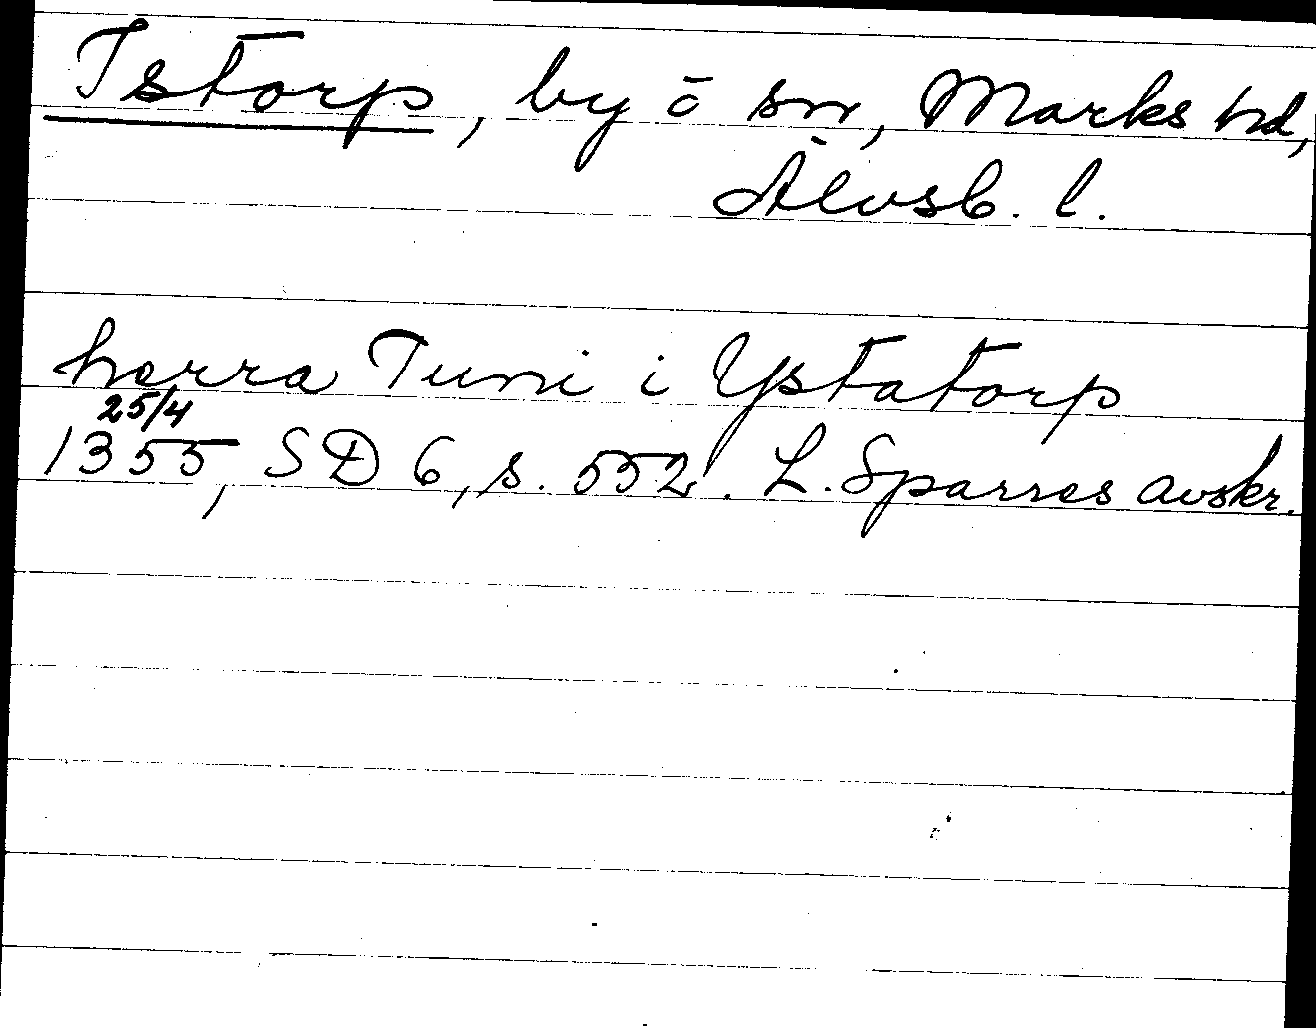 Istorp, by ō sn, Marks hd,
Älvsb. l.
herra Tuni i Ystatorp
25/4
1355, SD 6, s. 552. L. Sparres avskr.